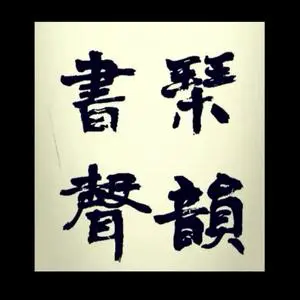 琹韻
書聲